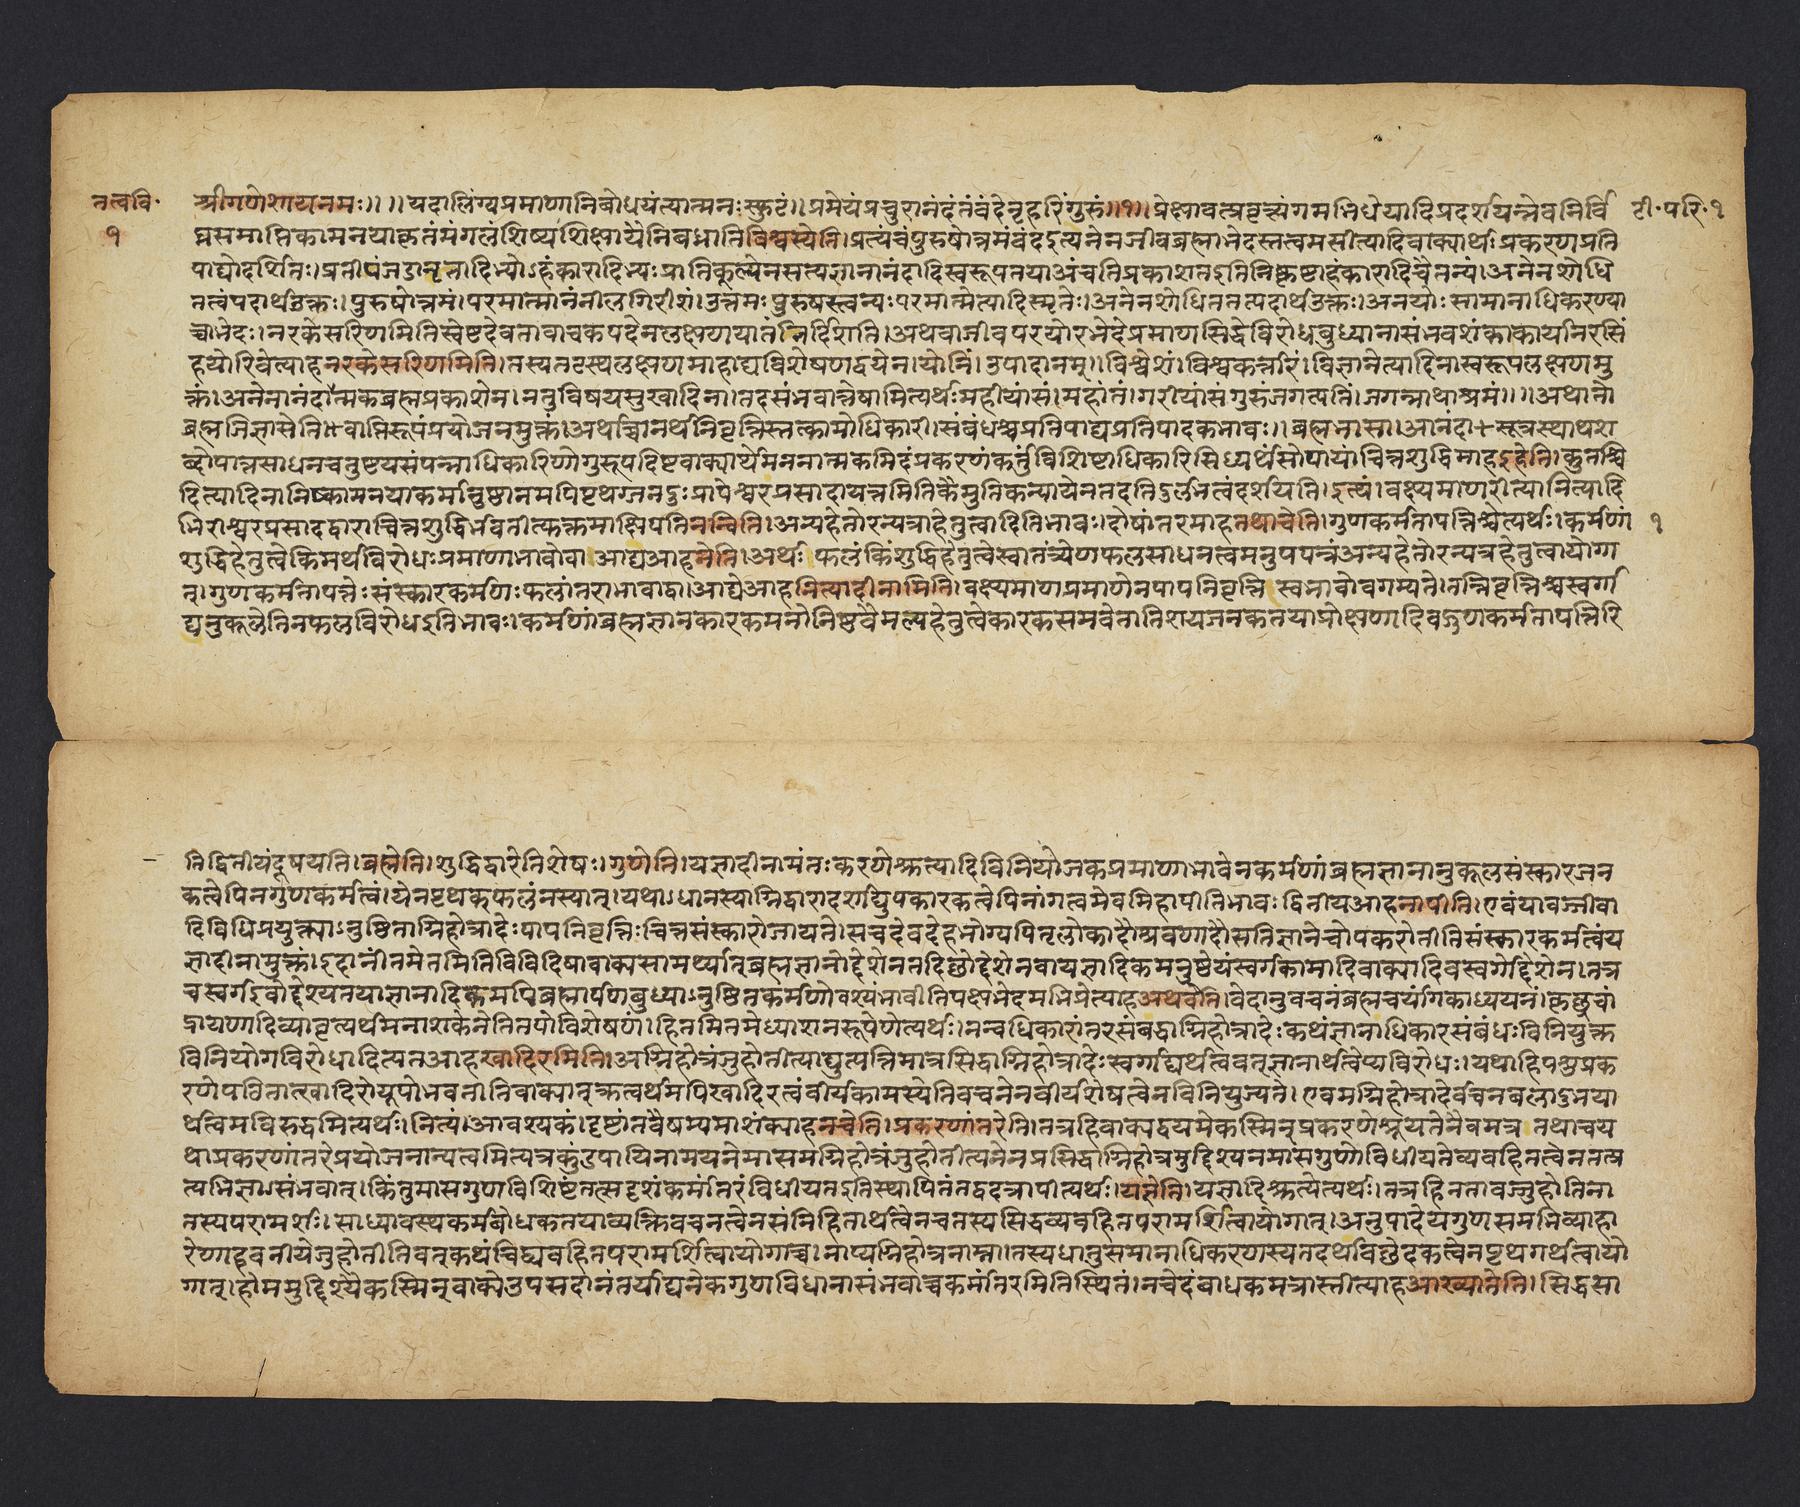 तत्ववि॰ श्रीगणेशायनमः।। ।।यदालिंग्यप्रमाणानिबोधयंत्यात्मनःस्फुटं।।प्रमेयंप्रचुरानंदंतंवंदेनृहरिंगुरुं।।१।।प्रेक्षावत्प्रवृत्त्यंगमभिधेयादिप्रदर्शयन्नेवनिर्वि टी॰परि॰१
१ घ्नसमाप्तिकामनयाकृतंमंगलंशिष्यशिक्षायैनिबध्नातिविश्वस्येति।प्रत्यंचंपुरुषोत्तमंवंदइत्यनेनजीवब्रह्माभेदस्तत्वमसीत्यादिवाक्यार्थःप्रकरणप्रति
पाद्योदर्शितः।प्रतीपंजडानृतादिभ्योऽहंकारादिभ्यःप्रातिकूल्येनसत्यज्ञानानंदादिस्वरूपतयाअंचतिप्रकाशतइतिनिकृष्टाहंकारादिचैतन्यं।अनेनशोधि
तत्वंपदार्थउक्तः।पुरुषोत्तमं।परमात्मानंनीलगिरीशं।उत्तमःपुरुषस्त्वन्यःपरमात्मेत्यादिस्मृतेः।अनेनशोधिततत्पदार्थउक्तः।अनयोःसामानाधिकरण्या
च्चाभेदः।नरकेसरिणमितिस्वेष्टदेवतावाचकपदेनलक्षणयातंनिर्दिशति।अथवाजीवपरयोरभेदेप्रमाणसिद्धेविरोधबुध्यानासंभवशंकाकार्यानरसिं
हयोरिवेत्याहनरकेसरिणमिति।तस्यतटस्थलक्षणमाहाद्यविशेषणद्वयेन।योनिं।उपादानम्।।विश्वेशं।विश्वकर्त्तारं।विज्ञानेत्यादिनास्वरूपलक्षणमु
क्तं।अनेनानंदात्मकब्रह्मप्रकाशेन।ननुविषयसुखादिना।तदसंभवान्नेषामित्यर्थःमहीयांसं।महांतं।गरीयांसंगुरुंजगत्पतिं।जगन्नाथाश्रमं।।।अथातो
ब्रह्मजिज्ञासेति।+वाप्तिरूपंप्रयोजनमुक्तं।अर्थाच्चानर्थनिवृत्तिस्तत्कामोधिकारी।संबंधश्चप्रतिपाद्यप्रतिपादकभावः।।ब्रह्मभासा।आनंदा+सूत्रस्थाथश
ब्दोपात्तसाधनचतुष्टयसंपन्नाधिकारिणोगुरूपदिष्टवाक्यार्थेमननात्मकमिदंप्रकरणंकर्तुंविशिष्टाधिकारिसिध्यर्थंसोपायांचित्तशुद्धिमाहइहेति।कुतश्चि
दित्यादिनानिष्कामनयाकर्मानुष्ठानमपिष्टथग्जनदुःप्रापेश्वरप्रसादायत्तमितिकैमुतिकन्यायेनतदतिदुर्लभत्वंदर्शयति।इत्थं।वक्ष्यमाणरीत्यानित्यादि
भिरीश्वरप्रसादद्वाराचित्तशुद्धिर्भवतीत्युक्तमाक्षिपतिनन्विति।अन्यहेतोरन्यत्राहेतुत्वादितिभावः।दोषांतरमाहतथाचेति।गुणकर्मतापत्तिश्चेत्यर्थः।कर्मणां १
शुद्धिहेतुत्वेकिमर्थविरोधःप्रमाणाभावोवा।आद्यआहनेति।अर्थः फलंकिंशुद्धिहेतुत्वेस्वातंत्र्येणफलसाधनत्वमनुपपन्नंअन्यहेतोरन्यत्रहेतुत्वायोगा
त्।गुणकर्मतापत्तेःसंस्कारकर्मणःफलांतराभावाद्वा।आद्येआहनित्यादीनामिति।वक्ष्यमाणप्रमाणेनपापनिवृत्ति स्वभावोवगम्यते।तन्निवृत्तिश्चस्वर्गा
द्यनुकूलेतिनफलविरोधइतिभावः।कर्मणांब्रह्मज्ञानकारकमनोनिष्ठवैमल्यहेतुत्वेकारकसमवेतातिशयजनकतयाप्रोक्षणादिवद्गुणकर्मतापत्तिरि
तिद्वितीयंदूषयति।ब्रह्मेति।शुद्धिद्वारेतिशेषः।गुणेति।यज्ञादीनामंतःकरणेश्रुत्यादिविनियोजकप्रमाणाभावेनकर्मणांब्रह्मज्ञानानुकूलसंस्कारजन
कत्वेपिनगुणकर्मत्वं।येनपृथक्फलंनस्यात्।यथाऽधानस्याग्निद्वारादर्शाद्युपकारकत्वेपिनांगत्वमेवमिहापीतिभावः द्वितीयआहनापीति।एवंयावज्जीवा
दिविधिप्रयुक्त्याऽनुष्ठिताग्निहोत्रादेःपापनिवृत्तिःचित्तसंस्कारोजायते।सचदेवदेहभोग्यपितृलोकादौश्रवणादौसतिज्ञानेचोपकरोतीतिसंस्कारकर्मत्वंय
ज्ञादीनामुक्तं।इदानींतमेतमितिविविदिषावाक्यसामर्थ्यात्ब्रह्मज्ञानोद्देशेनतदिच्छोद्देशेनवायज्ञादिकमनुष्ठेयंस्वर्गकामादिवाक्यादिवस्वर्गोद्देशेन।तत्र
चस्वर्गइवोद्देश्यतयाज्ञानादिकमपिब्रह्मार्पणबुध्याऽनुष्ठितकर्मणोवश्यंभावीतिपक्षभेदमभिप्रेत्याहअथवेति।वेदानुवचनंब्रह्मचर्यांगिकाध्ययनं।कृच्छ्रचां
द्रायणादिव्यावृत्यर्थमनाशकेनेतितपोविशेषणं।हितमितमेध्याशनरूपेणेत्यर्थः।नन्वधिकारांतरसंबद्धाग्निहोत्रादेःकथंज्ञानाधिकारसंबंधःविनियुक्त
विनियोगविरोधादित्यतआहखादिरमिति।अग्निहोत्रंजुहोतीत्याद्युत्पत्तिमात्रसिद्धाग्निहोत्रादेःस्वर्गाद्यर्थत्ववत्ज्ञानार्थत्वेप्यविरोधः।यथाहिपशुप्रक
रणेपठितात्खादिरोयूपोभवतीतिवाक्यात्क्रत्वर्थमपिखादिरत्वंवीर्यकामस्येतिवचनेनवीर्यशेषत्वेनविनियुज्यते।एवमग्निहोत्रादेर्वचनबलादुभया
र्थत्वमविरुद्धमित्यर्थः।नित्यं।आवश्यकं।दृष्टांतवैषम्यमाशंक्याहनचेति।प्रकरणांतरेति।तत्रहिवाक्यद्वयमेकस्मिन्प्रकरणेश्रूयतेनैवमत्र तथाचय
थाप्रकरणांतरेप्रयोजनान्यत्वमित्यत्रकुंडपायिनामयनेमासमग्निहोत्रंजुहोतीत्यनेनप्रसिद्धाग्निहोत्रमुद्दिश्यनमासगुणोविधीयतेव्यवहितत्वेनतत्प्र
त्यभिज्ञाऽसंभवात्।किंतुमासगुणविशिष्टंतत्सदृशंकर्मांतरंविधीयतइतिस्थापितंतद्वदत्रापीत्यर्थः।यज्ञेति।यज्ञादिश्रुत्येत्यर्थः।तत्रहिनतावज्जुहोतिना
तस्यपरामर्शः।साध्यावस्थकर्मबोधकतयाव्यक्तिवचनत्वेनसंनिहितार्थत्वेनचतस्यसिद्धव्यवहितपरामर्शित्वायोगात्।अनुपादेयगुणसमभिव्याहा
रेणाहवनीयेजुहोतीतिवत्कथंचिद्व्यवहितपरामर्शित्वायोगाच्च।नाप्यग्निहोत्रनाम्ना।तस्यधातुसमानाधिकरणस्यतदर्थविच्छेदकत्वेनपृथगर्थत्वायो
गात्।होममुद्दिश्यैकस्मिन्वाक्येउपसदानंतर्याद्यनेकगुणविधानासंभवाच्चकर्मांतरमितिस्थितं।नचेदंबाधकमत्रास्तीत्याहआख्यातेति।सिद्धसा